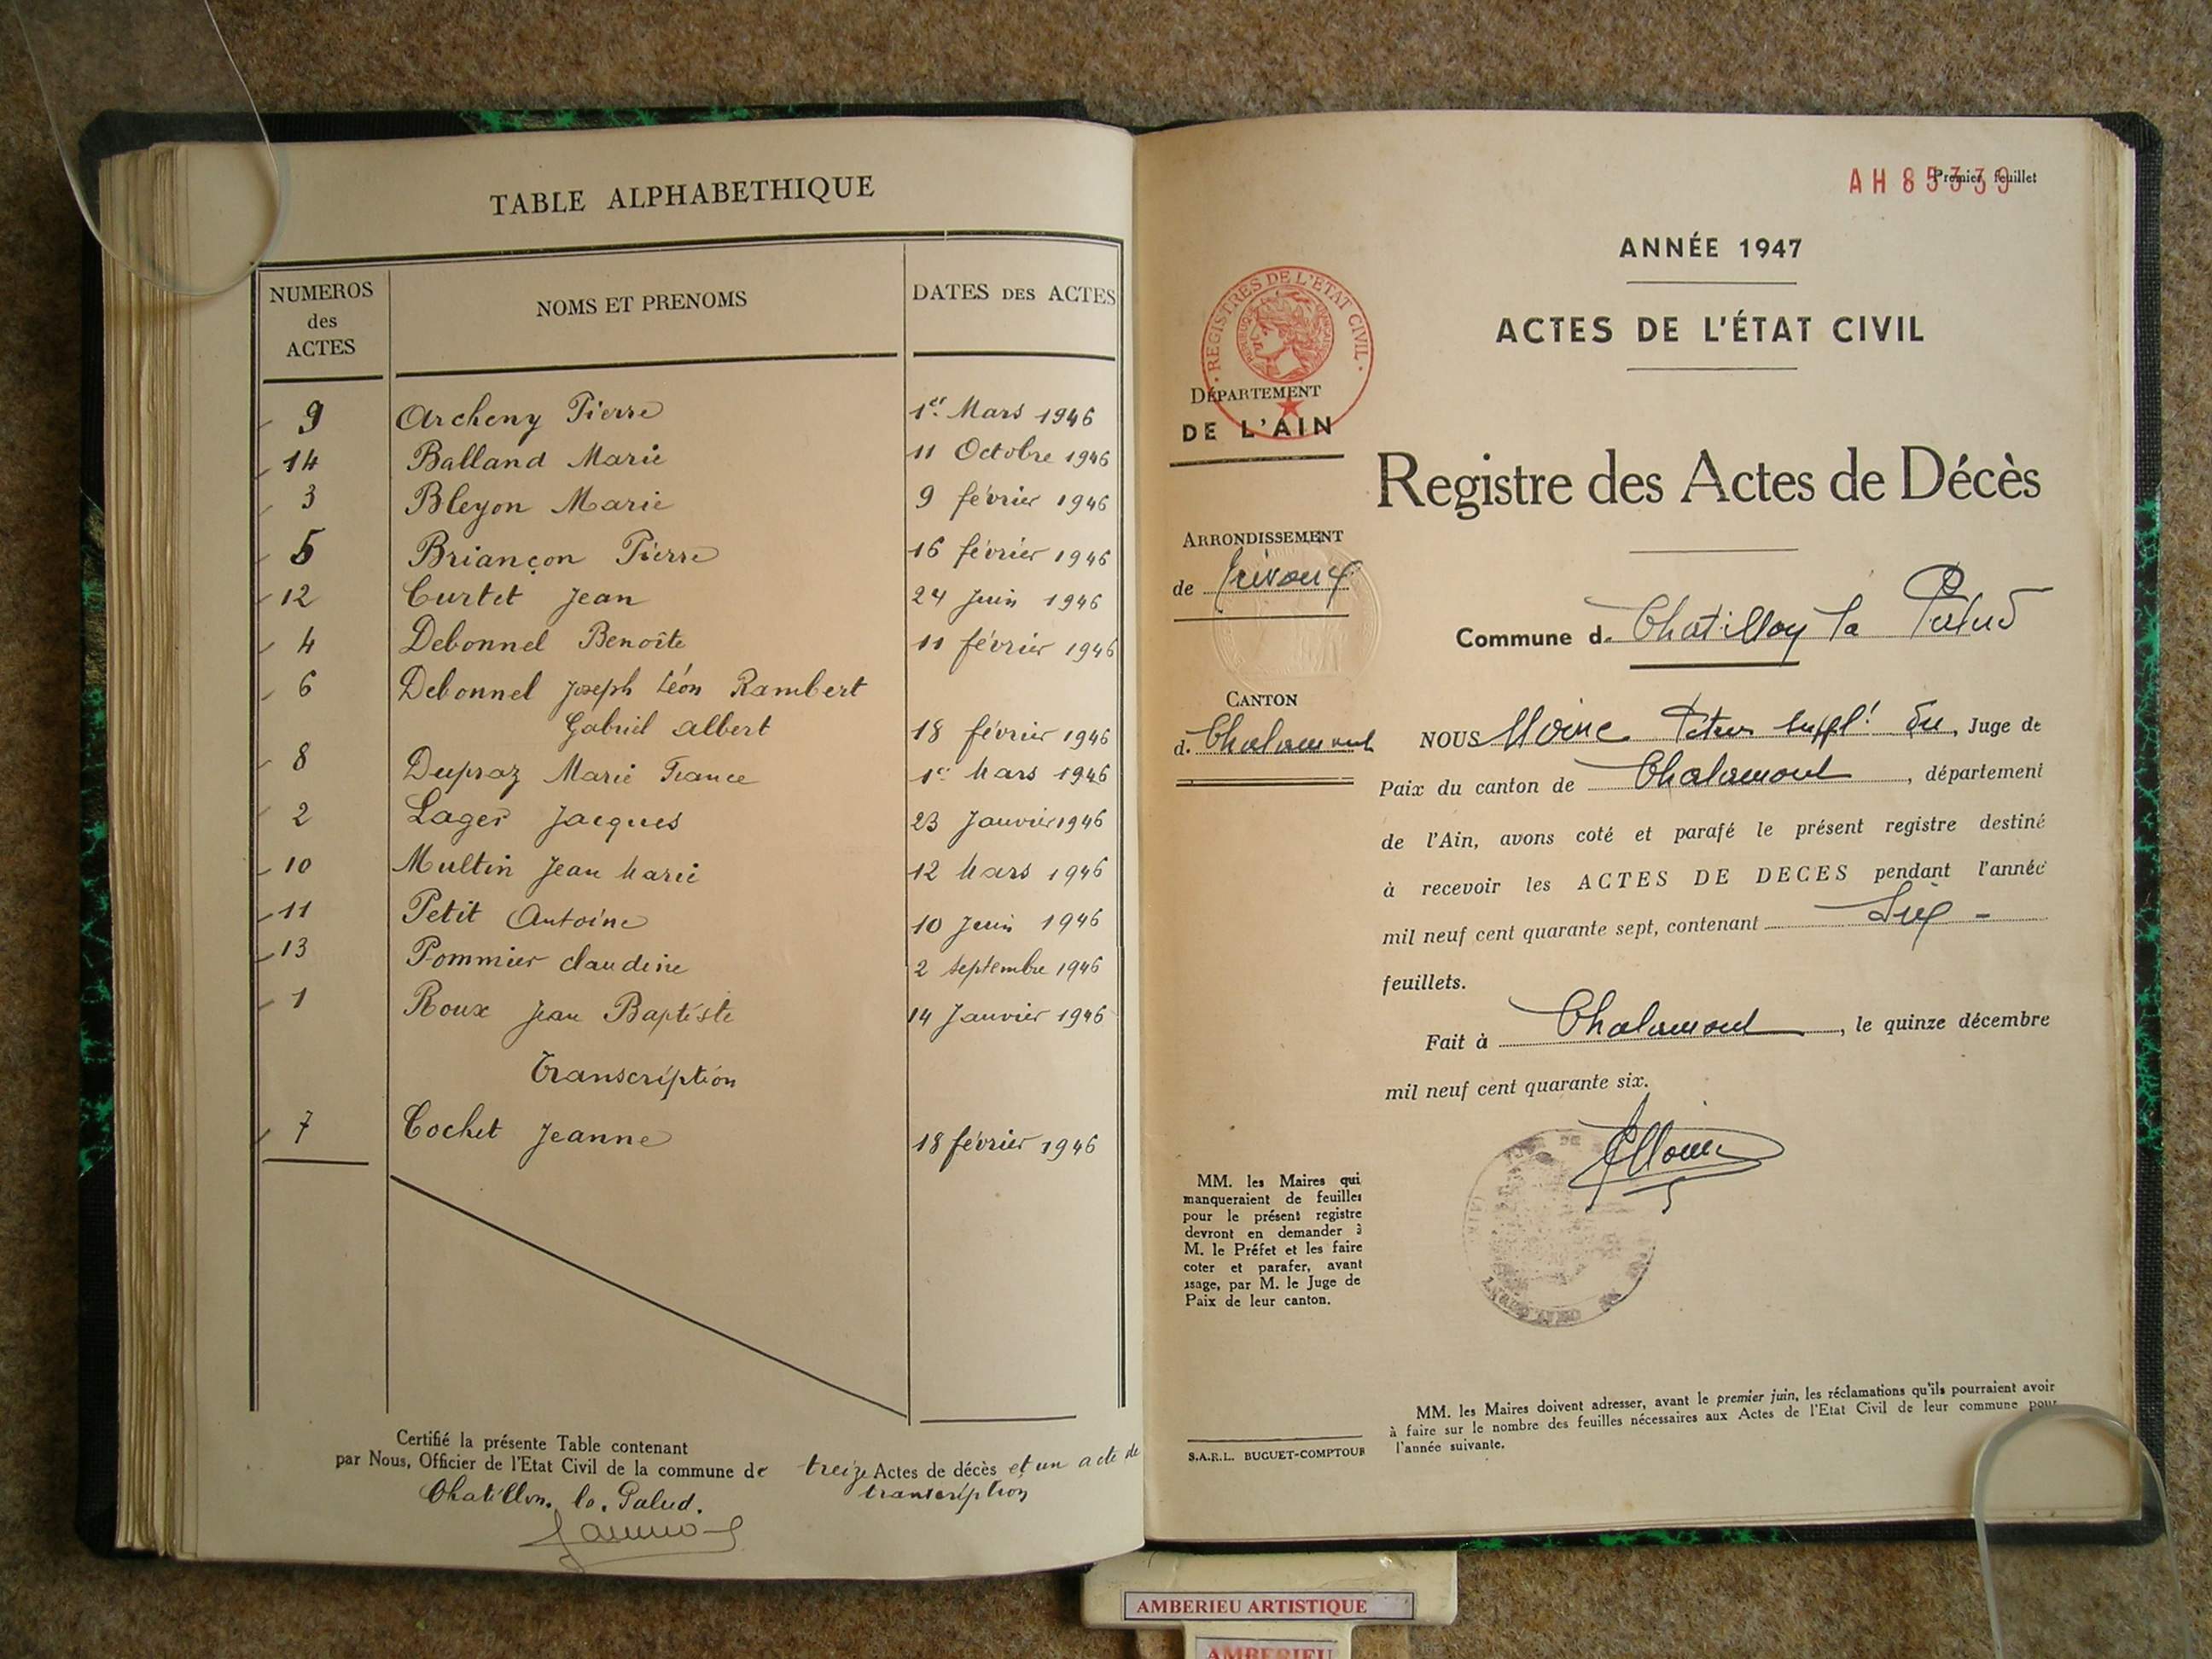 TABLE ALPHABETHIQUE
NUMEROS des ACTES NOMS ET PRENOMS DATES DES ACTES
9 Archeny Pierre 1er Mars 1946
14 Balland Marie 11 Octobre 1946
3 Bleyon Marie 9 février 1946
5 Briançon Pierre 16 février 1946
12 Curtet Jean 24 Juin 1946
4 Debonnel Benoîte 11 février 1946
6 Debonnel Joseph Léon Rambert
Gabriel Albert 18 février 1946
8 Dupraz Marie France 1er Mars 1946
2 Lager Jacques 23 Janvier 1946
10 Multin Jean Marie 12 Mars 1946
11 Petit Antoine 10 Juin 1946
13 Pommier Claudine 2 Septembre 1946
1 Roux Jean Baptiste 14 Janvier 1946
Transcription
7 Cochet Jeanne 18 février 1946
Certifié la présente Table contenant treize Actes de décès et un acte de transcription
par Nous, Officier de l'Etat Civil de la commune de
Chatillon la Palud.
AH 85339 Premier feuillet
ANNÉE 1947
ACTES DE L'ÉTAT CIVIL
REGISTRES DE L'ETAT CIVIL
DÉPARTEMENT
DE L'AIN
Registre des Actes de Décès
ARRONDISSEMENT
de Trévoux
Commune d. Chatillon la Palud
CANTON
d. Chalamont
NOUS Moine suppl! du, Juge de
Paix du canton de Chalamont, département
de l'Ain, avons coté et parafé le présent registre destiné
à recevoir les ACTES DE DECES pendant l'année
mil neuf cent quarante sept, contenant Six -
feuillets.
Fait à Chalamont, le quinze décembre
mil neuf cent quarante six.
MM. les Maires qui
manqueraient de feuilles
pour le présent registre
devront en demander à
M. le Préfet et les faire
coter et parafer, avant
usage, par M. le Juge de
Paix de leur canton.
S.A.R.L. BUGUET-COMPTOUR
MM. les Maires doivent adresser, avant le premier juin, les réclamations qu'ils pourraient avoir
à faire sur le nombre des feuilles nécessaires aux Actes de l'Etat Civil de leur commune pour
l'année suivante.
AMBERIEU ARTISTIQUE
AMBERIEU